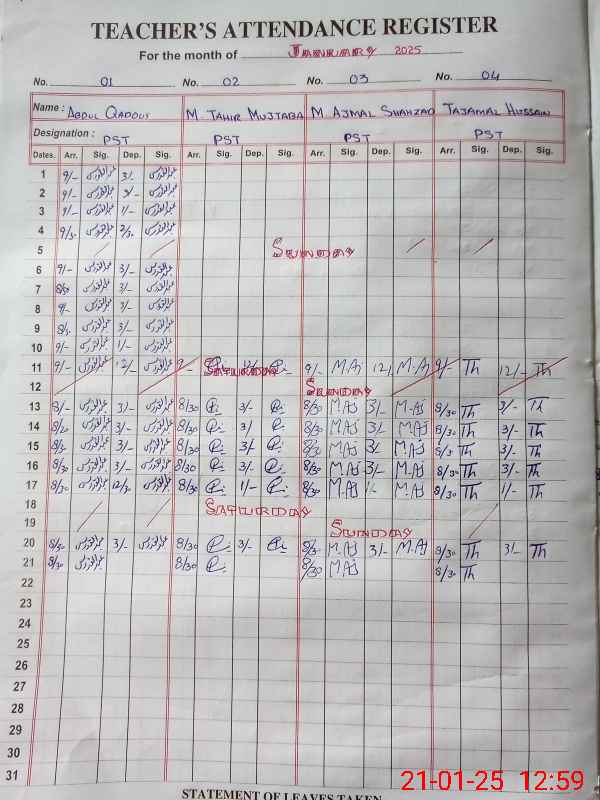 TEACHER'S ATTENDANCE REGISTER
For the month of January 2025
No. 01 No. 02 No. 03 No. 04
Name: ABDUL QADOUS M TAHIR MUJTABA M AJMAL SHAHZAD TAJAMAL HUSSAIN
Designation: PST PST PST PST
Dates. Arr. Sig. Dep. Sig. Arr. Sig. Dep. Sig. Arr. Sig. Dep. Sig. Arr. Sig. Dep. Sig.
1 9/- 3/-
2 9/- 3/-
3 9/- 1/-
4 9/30 2/30
5 SUNDAY
6 9/- 3/-
7 8/30 3/-
8 9/- 3/-
9 8/30 3/-
10 9/- 1/-
11 9/- 12/- 9/- SATURDAY 9/- M.Aj 12/- M.Aj 9/- Th 12/- Th
12 SUNDAY
13 8/- 3/- 8/30 3/- 8/30 M.Aj 3/- M.Aj 8/30 Th 3/- Th
14 8/30 3/- 8/30 3/ 8/30 M.Aj 3/- M.Aj 8/30 Th 3/- Th
15 8/30 3/- 8/30 3/- 8/30 M.Aj 3/- M.Aj 8/3 Th 3/- Th
16 8/30 3/- 8/30 3/- 8/30 M.Aj 3/- M.Aj 8/30 Th 3/- Th
17 8/30 12/30 8/30 1/- 8/30 M.Aj 1/- M.Aj 8/30 Th 1/- Th
18 SATURDAY
19 SUNDAY
20 8/30 3/- 8/30 3/- 8/30 M.Aj 3/- M.Aj 8/30 Th 3/- Th
21 8/30 8/30 8/30 M.Aj 8/30 Th
22
23
24
25
26
27
28
29
30
31
STATEMENT OF LEAVES TAKEN
21-01-25 12:59